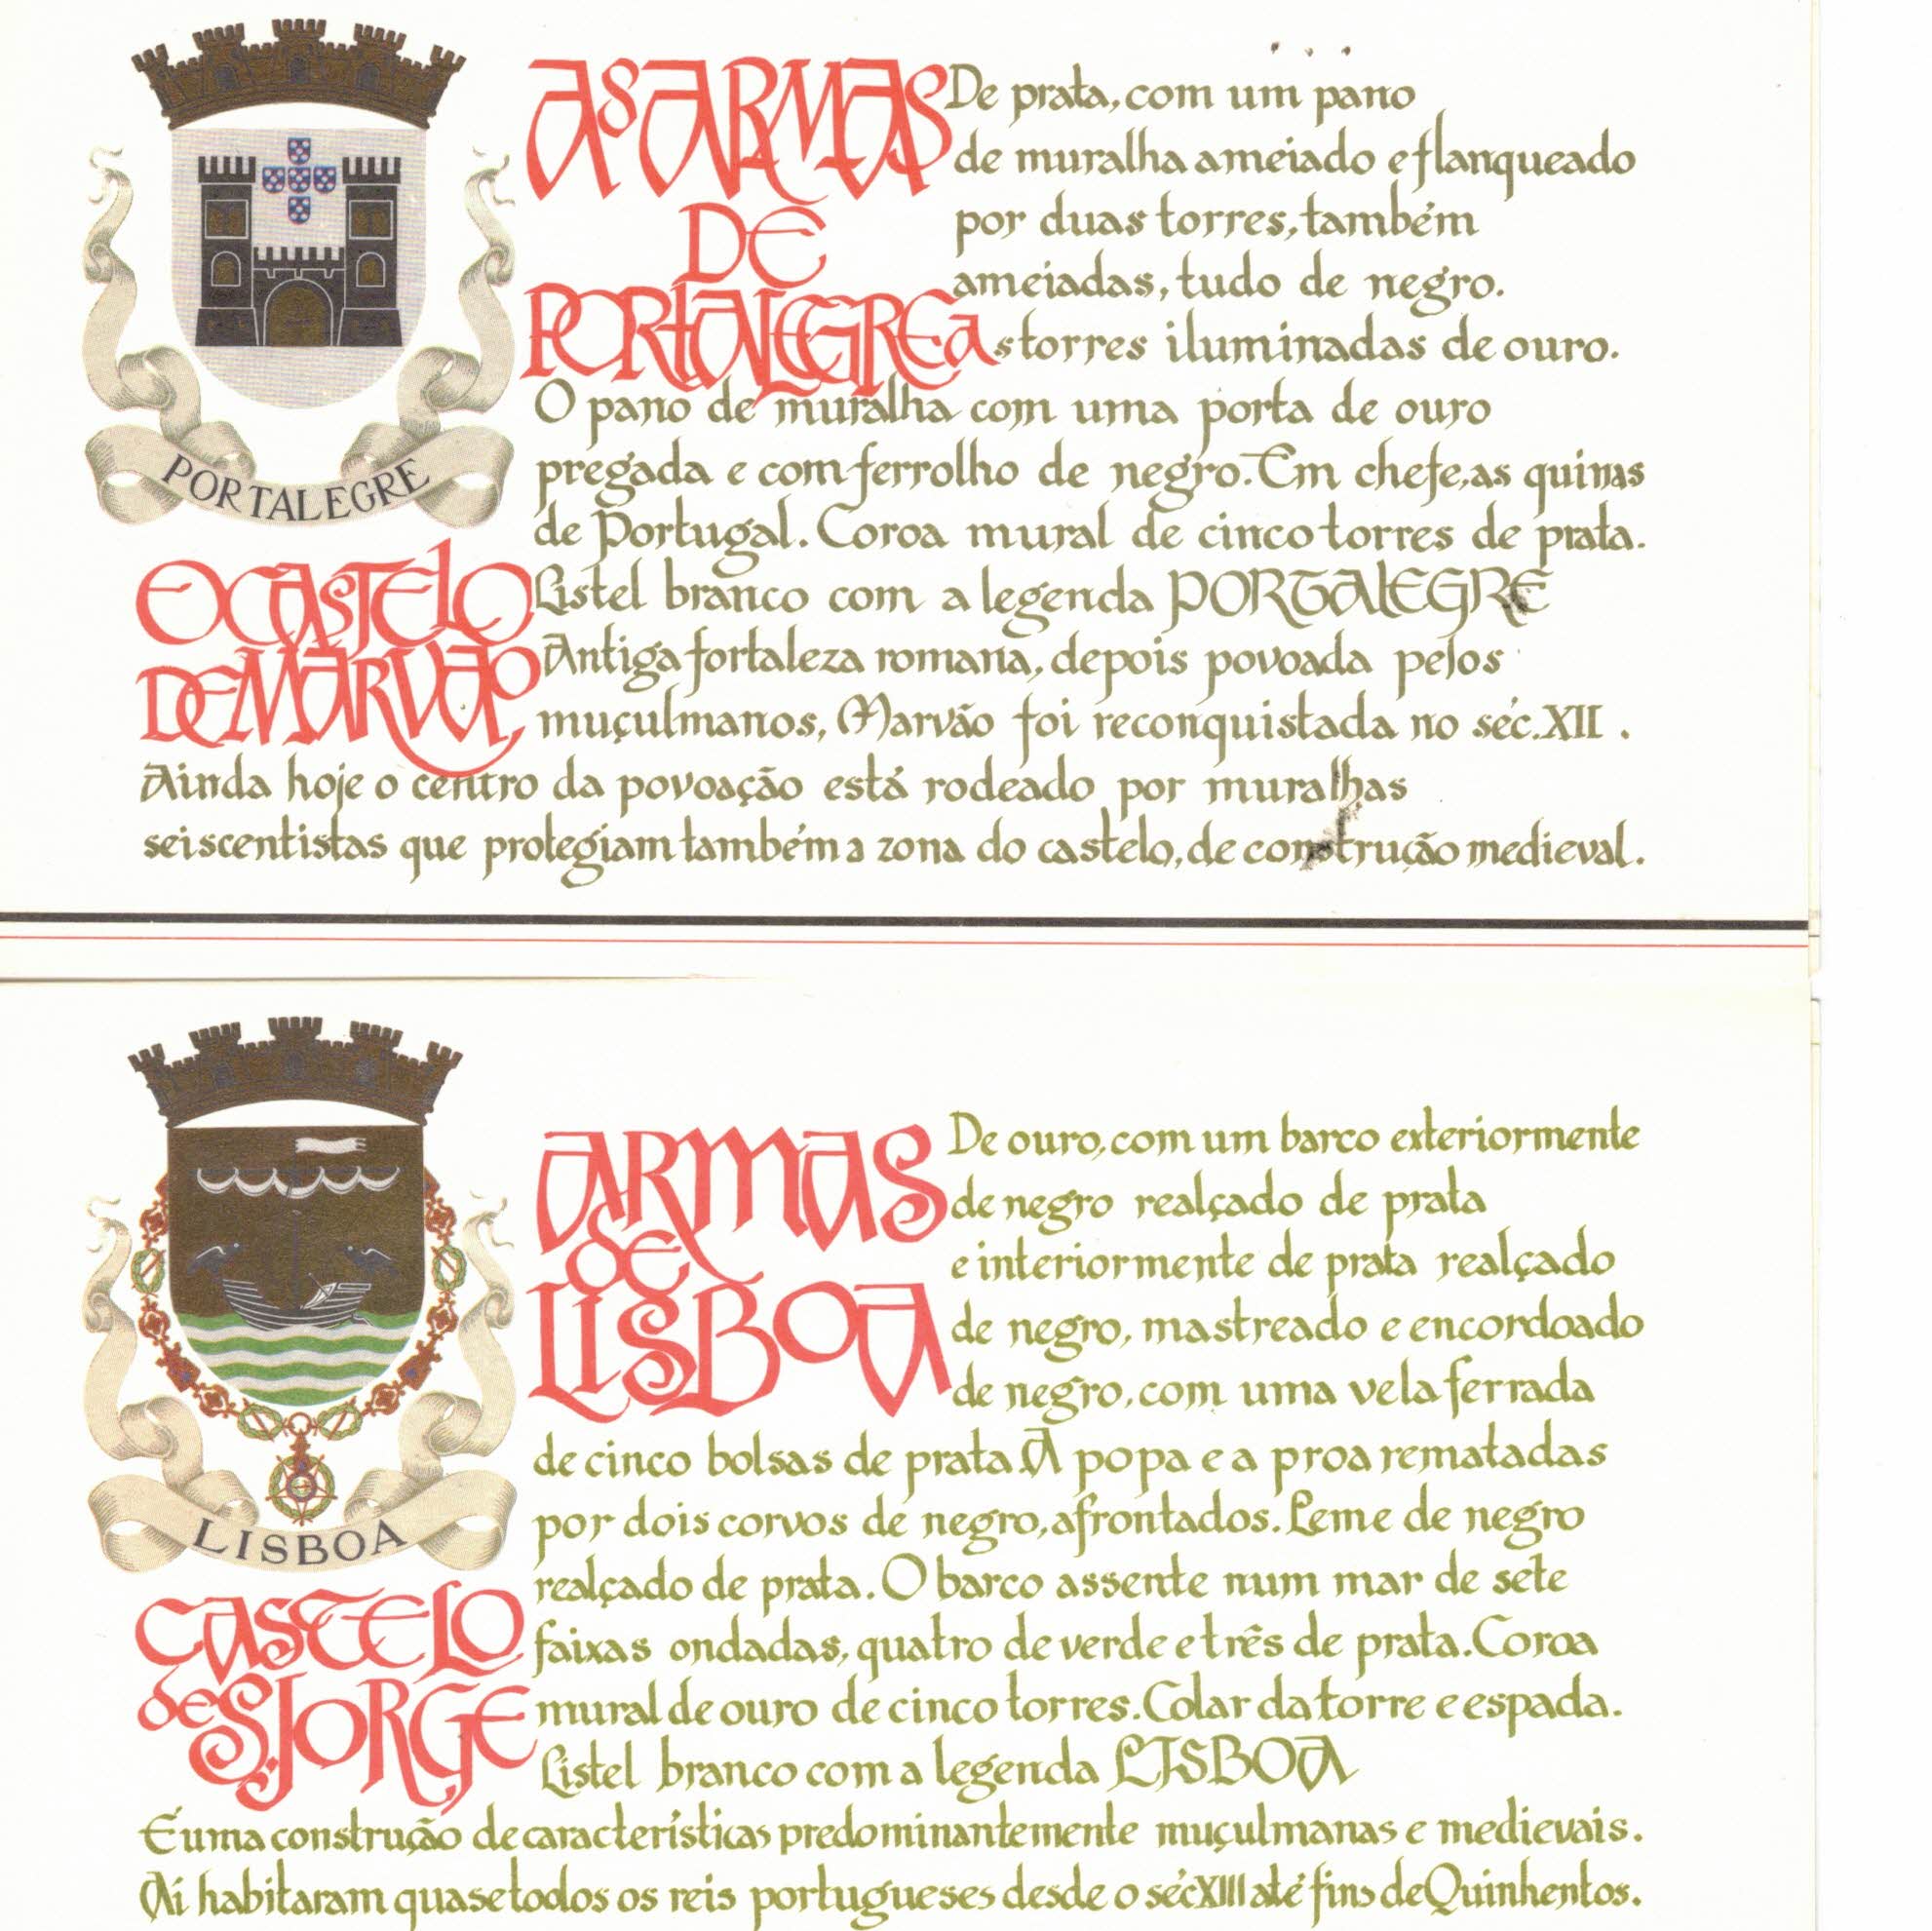 AS ARMAS
DE
PORTALEGRE
De prata, com um pano
de muralha ameiado e flanqueado
por duas torres, também
ameiadas, tudo de negro.
as torres iluminadas de ouro.
O pano de muralha com uma porta de ouro
pregada e com ferrolho de negro. Em chefe, as quinas
de Portugal. Coroa mural de cinco torres de prata.
Listel branco com a legenda PORTALEGRE
PORTALEGRE
O CASTELO
DE MARVÃO
Antiga fortaleza romana, depois povoada pelos
muçulmanos, Marvão foi reconquistada no séc. XII.
Ainda hoje o centro da povoação está rodeado por muralhas
seiscentistas que protegiam também a zona do castelo, de construção medieval.
ARMAS
DE
LISBOA
De ouro, com um barco exteriormente
de negro realçado de prata
e interiormente de prata realçado
de negro, mastreado e encordoado
de negro, com uma vela ferrada
de cinco bolsas de prata. A popa e a proa rematadas
por dois corvos de negro, afrontados. Leme de negro
realçado de prata. O barco assente num mar de sete
faixas ondadas, quatro de verde e três de prata. Coroa
mural de ouro de cinco torres. Colar da torre e espada.
Listel branco com a legenda LISBOA
LISBOA
CASTELO
DE S. JORGE
É uma construção de características predominantemente muçulmanas e medievais.
Aí habitaram quase todos os reis portugueses desde o séc XIII até fins de Quinhentos.